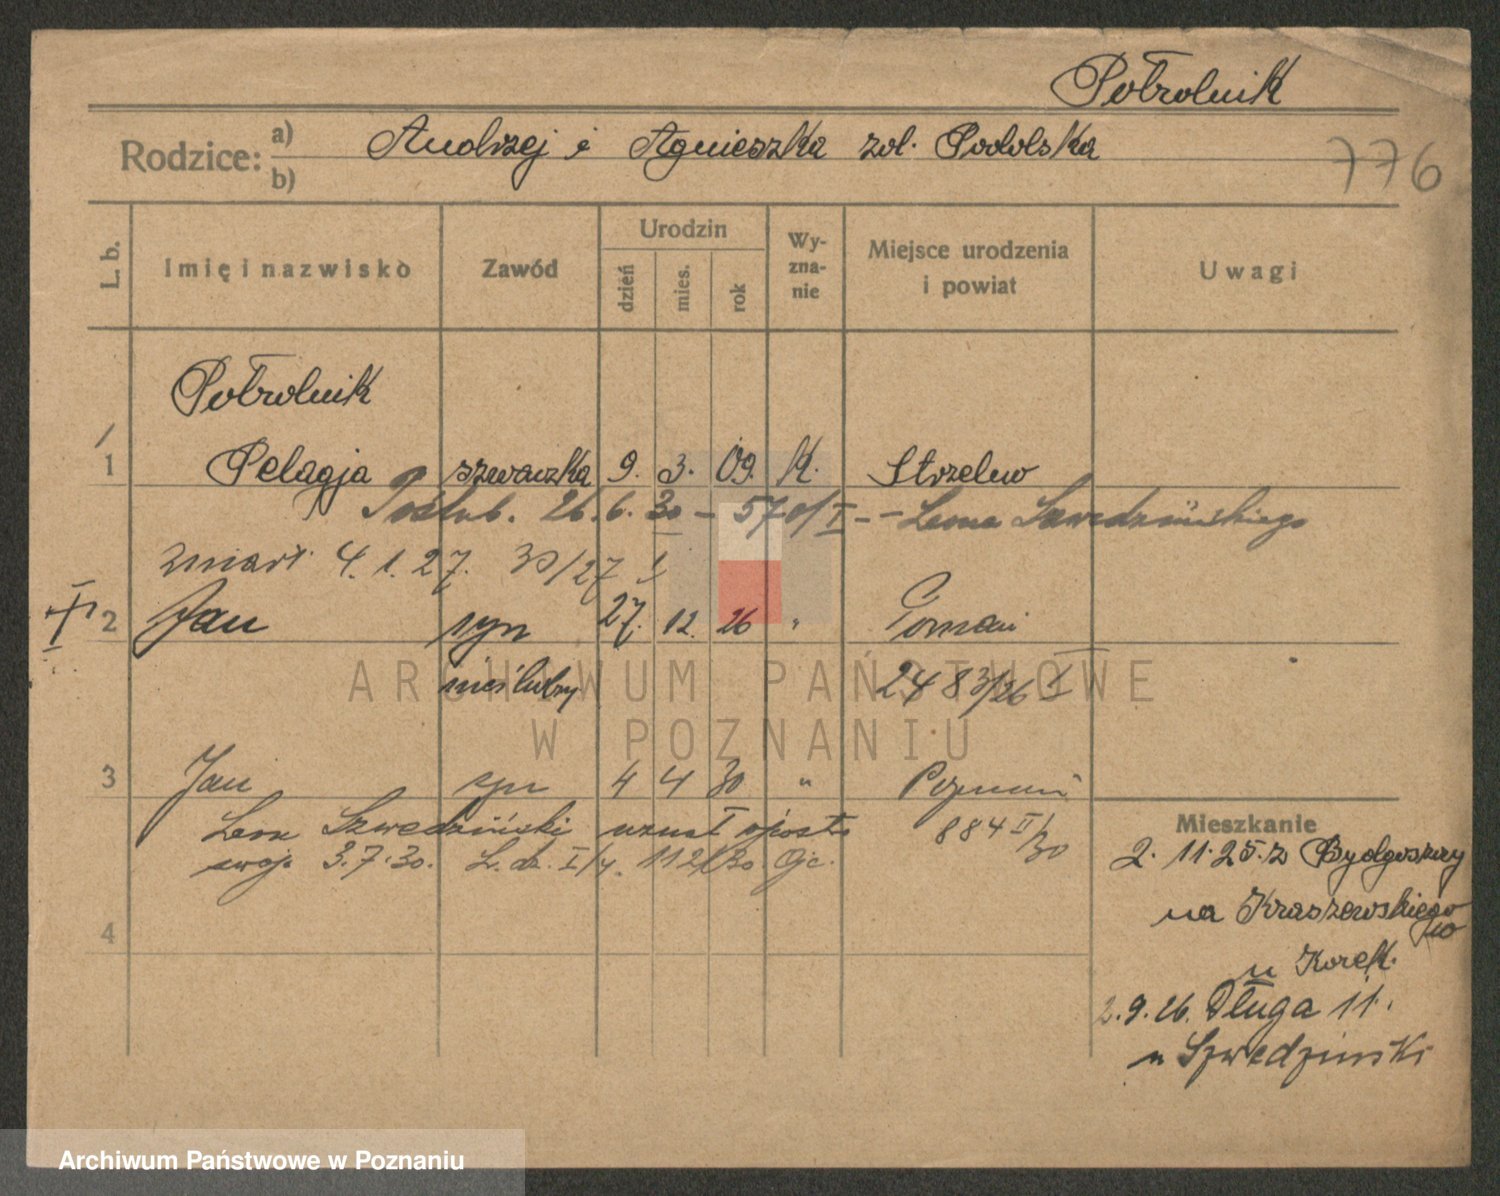 Półrolnik
Rodzice: a) Andrzej i Agnieszka zol. Podolska
b)
776
L. b.
Imię i nazwisko
Zawód
Urodzin
dzień
mies.
rok
Wy-
zna-
nie
Miejsce urodzenia
i powiat
Uwagi
Półrolnik
1 Pelagja szwaczka 9. 3. 09. K. Strzelno
Poślub. 26.6.30 – 570/I – Leona Szwedzińskiego
zmarł 4.1.27. 30/27 I
2 Jan syn 27. 12. 26 " Poznań
nieślubny 2483/26 I
3 Jan syn 4 4 30 " Poznań
884 II/30
Leon Szwedziński uznał
swoje 3.7.30. L. dz. I/4. 112/30. Ojc.
4
Mieszkanie
2.11.25. z Bydgoszczy
na Kraszewskiego
u Korek.
2.9.26. Długa 11.
u Szwedzinski
ARCHIWUM PAŃSTWOWE
W POZNANIU
Archiwum Państwowe w Poznaniu